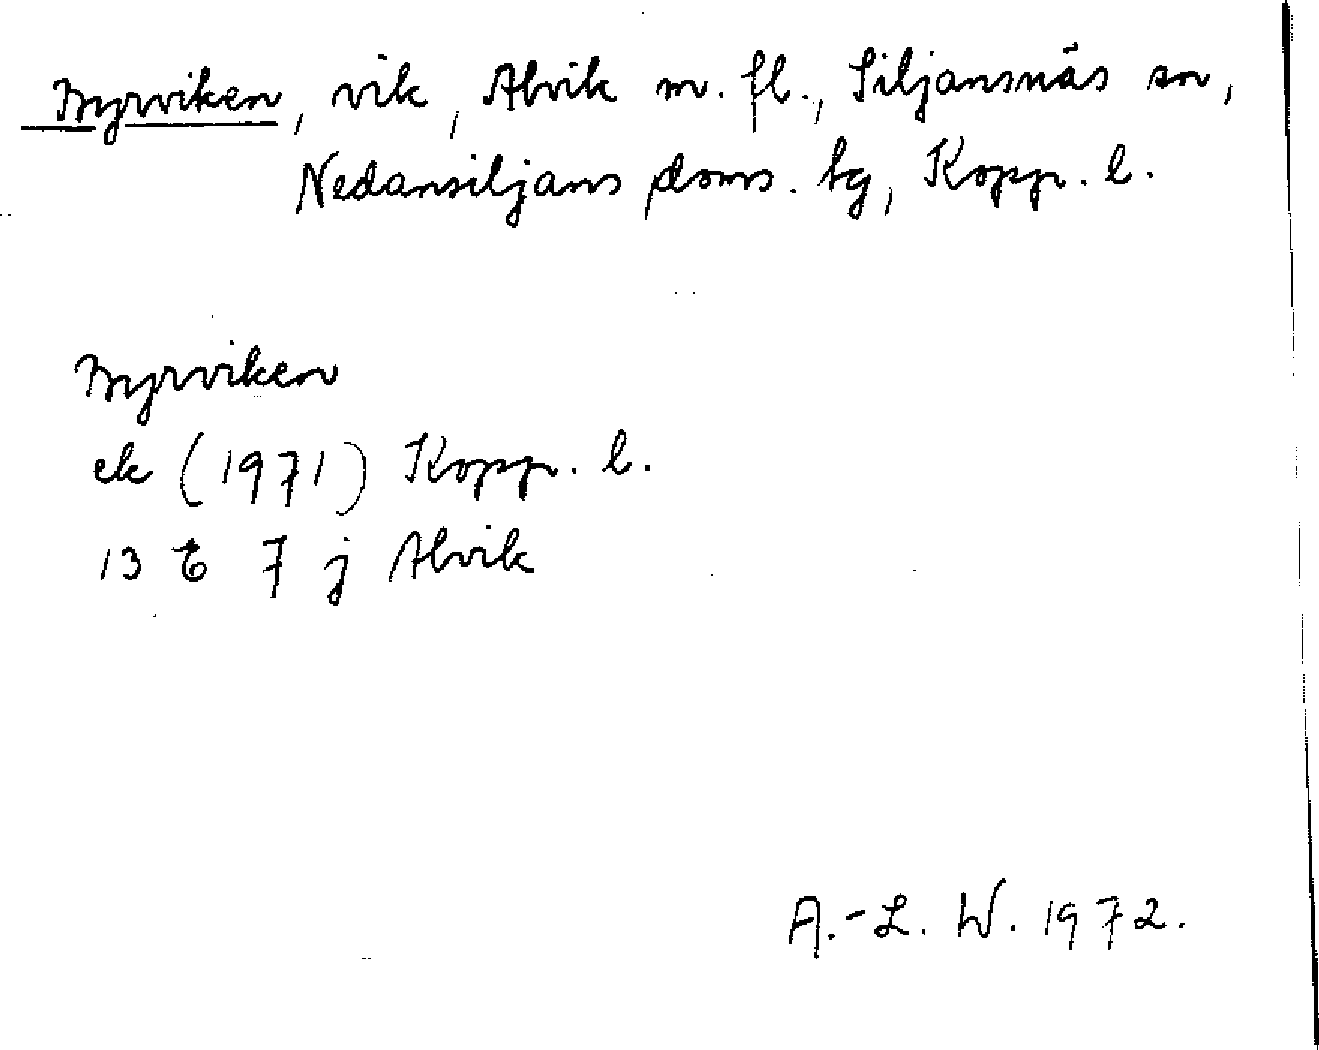 Myrviken, vik, Alvik m. fl., Siljansnäs sn,
Nedansiljans doms. tg, Kopp. l.
Myrviken
ek (1971) Kopp. l.
13 E 7 j Alvik
A.-L. W. 1972.